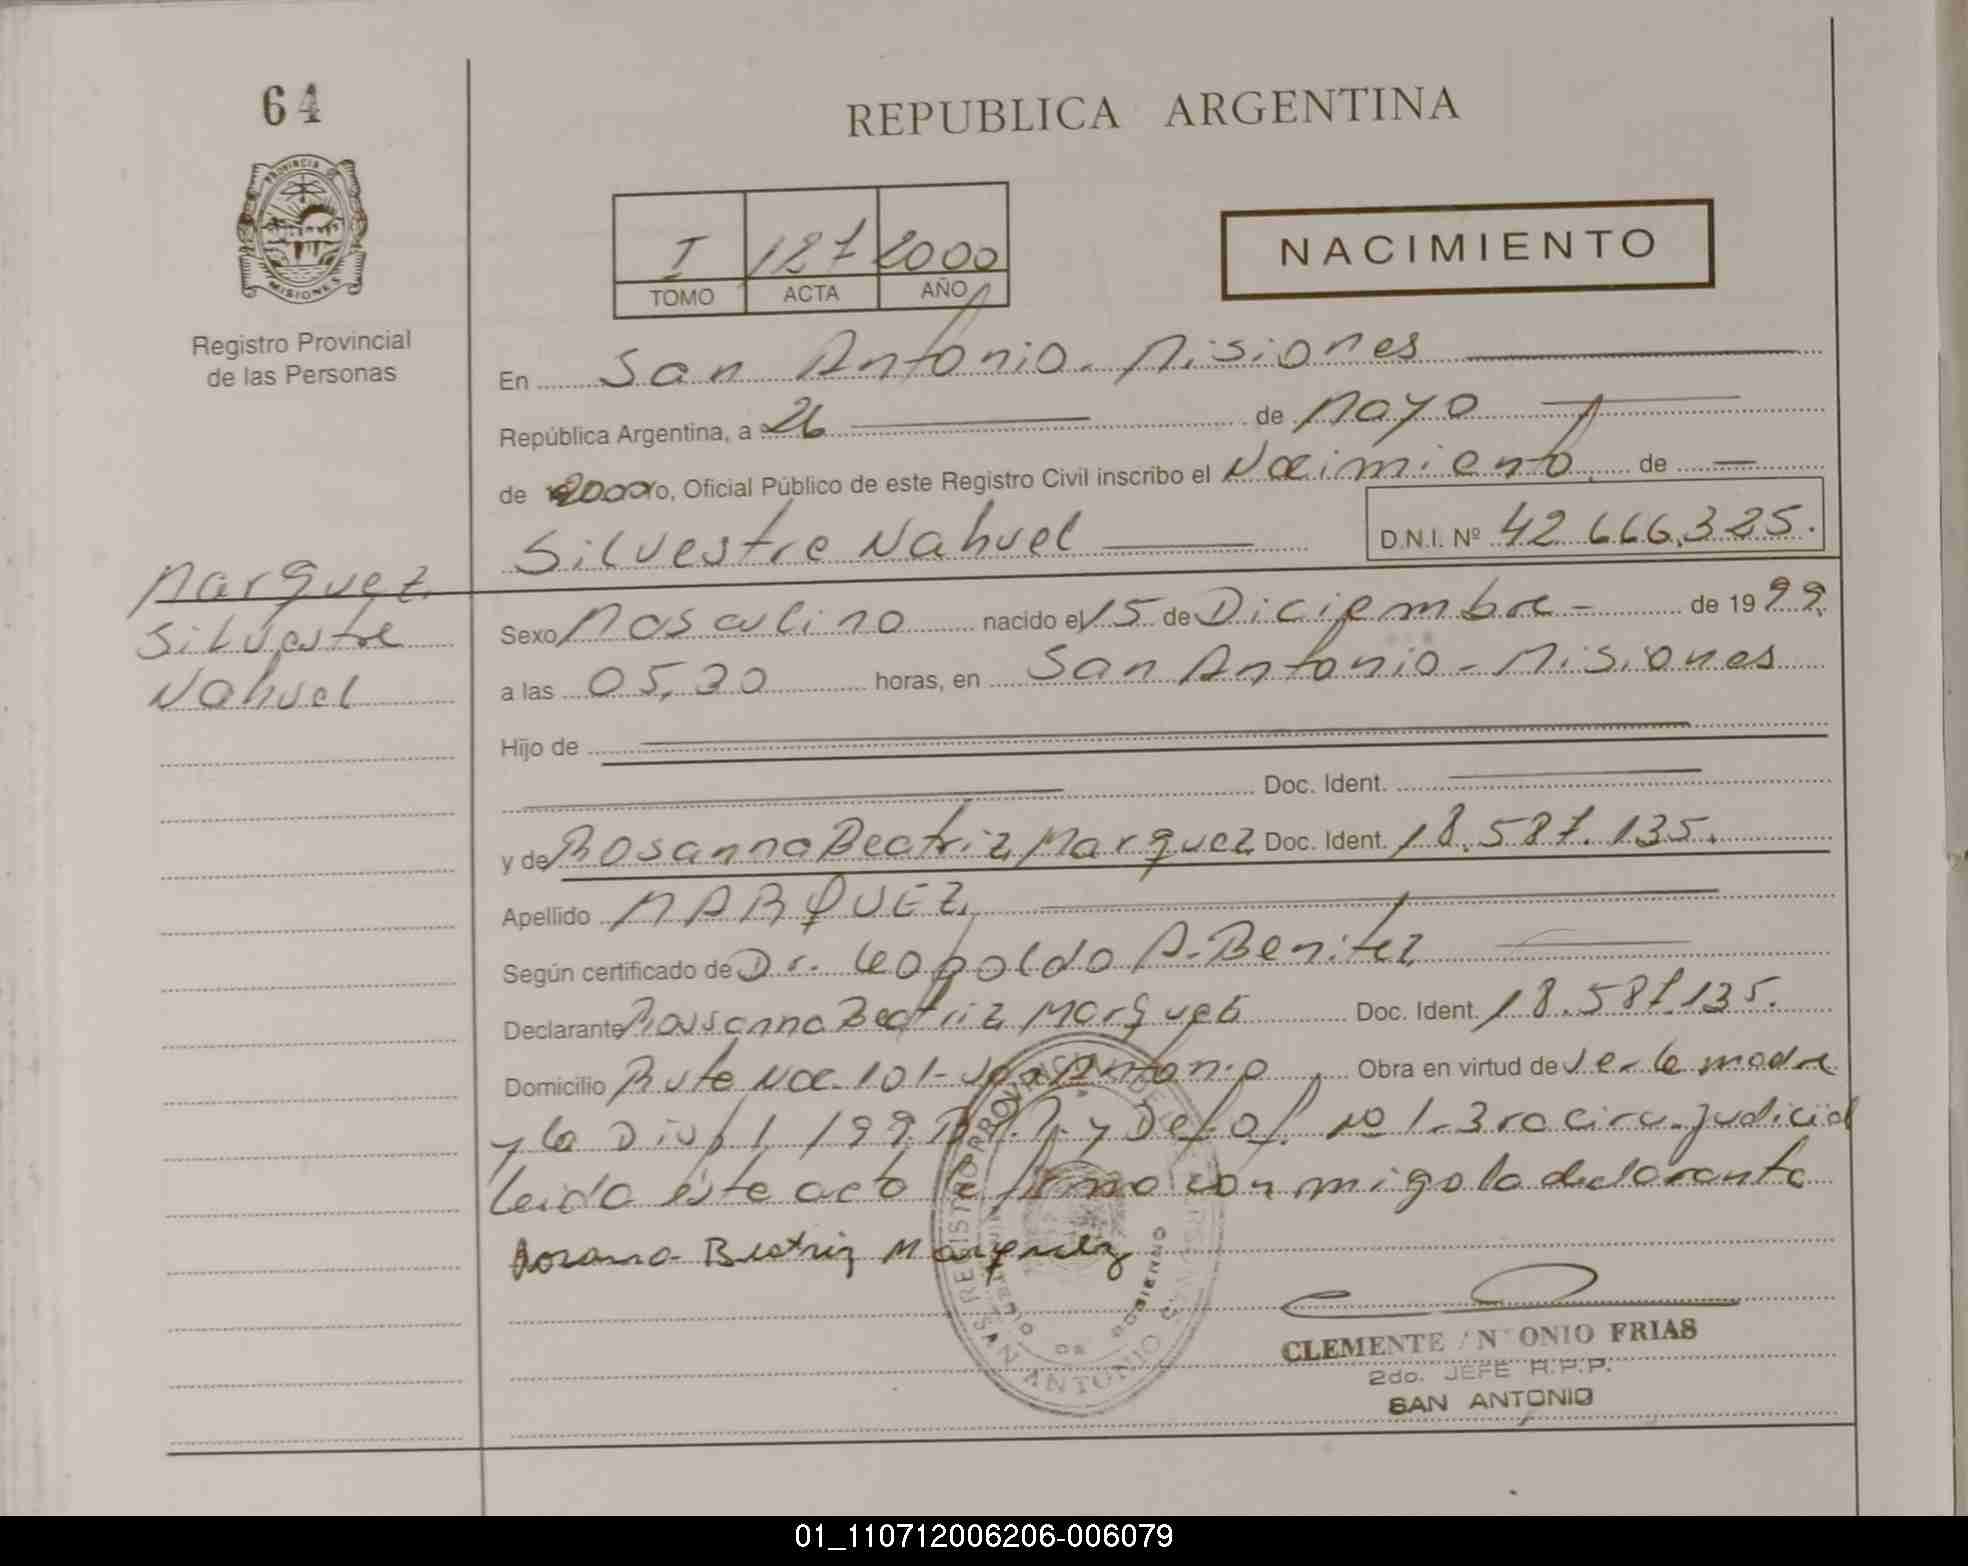 64
REPUBLICA ARGENTINA
PROVINCIA DE
MISIONES
Registro Provincial
de las Personas
I 127 2000
TOMO ACTA AÑO
NACIMIENTO
En San Antonio. Misiones
República Argentina, a 26 de Mayo
de 2000 yo, Oficial Público de este Registro Civil inscribo el Nacimiento de
Silvestre Nahuel D.N.I. Nº 42.666.325.
Marquez
Silvestre
Nahuel
Sexo Masculino nacido el 15 de Diciembre - de 1999.
a las 05,30 horas, en San Antonio - Misiones
Hijo de
Doc. Ident.
y de Rosanna Beatriz Marquez Doc. Ident. 18.587.135.
Apellido MARQUEZ
Según certificado de Dr. Leopoldo A. Benitez
Declarante Rossanna Beatriz Marquez Doc. Ident. 18.587.135.
Domicilio Ruta Nac. 101 - San Antonio Obra en virtud de ser la madre
y la 199 y Def. Of. Nº 1. 3ra circ. Judicial
leida este acta la firma conmigo la declarante
Rosana Beatriz Marquez
REGISTRO PROVINCIAL DE LAS PERSONAS
GOBIERNO
SAN ANTONIO
CLEMENTE ANTONIO FRIAS
2do. JEFE R.P.P.
SAN ANTONIO
01_110712006206-006079